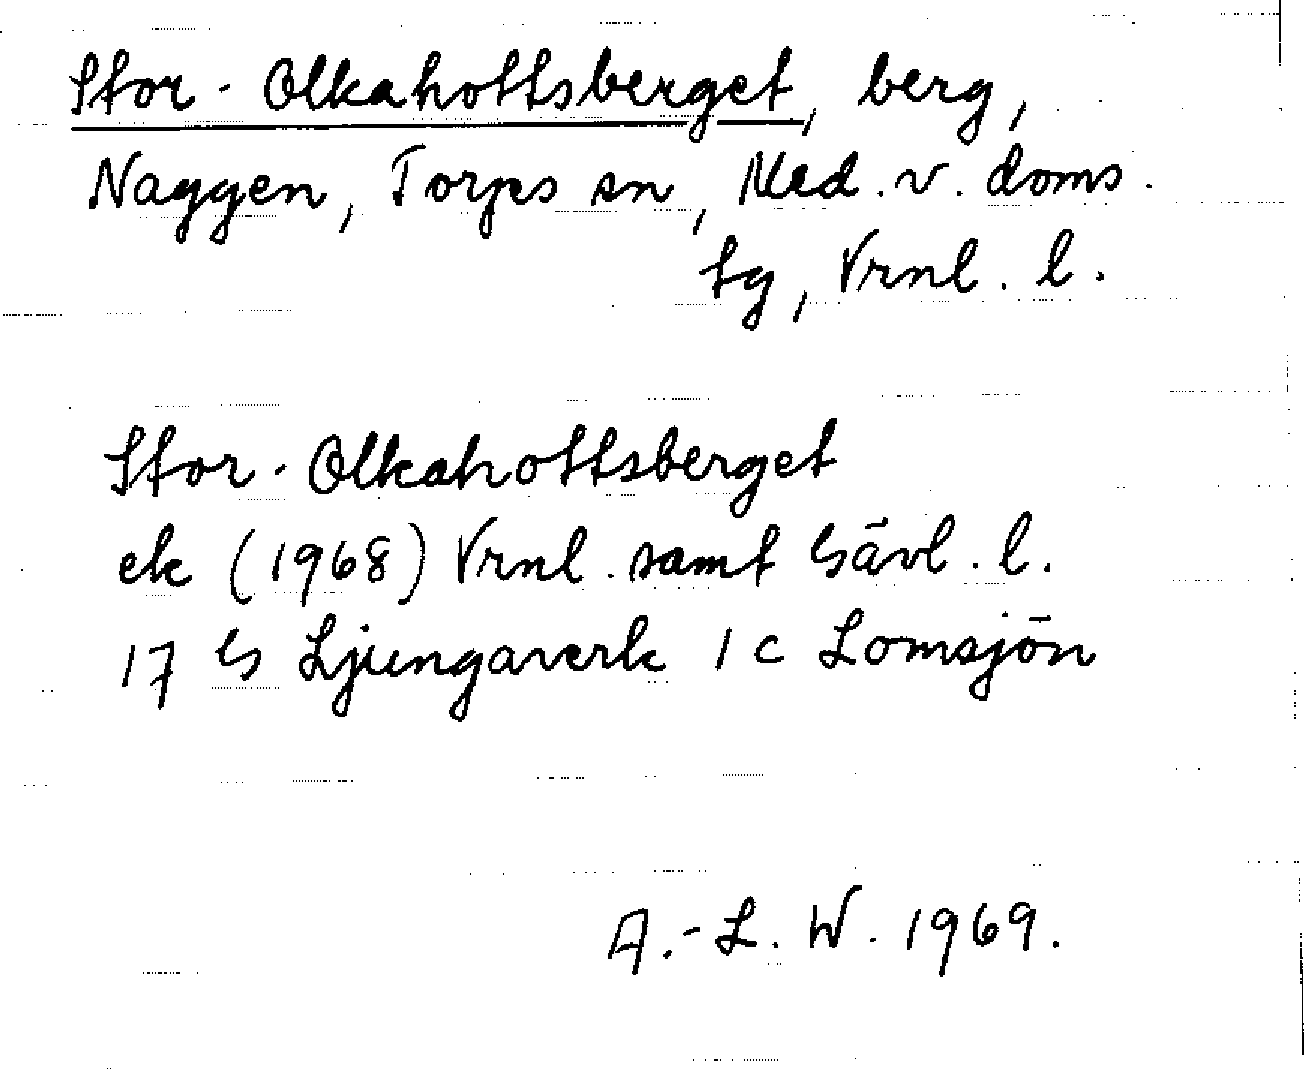 Stor-Olkahottsberget, berg,
Naggen, Torps sn, Med. v. doms.
tg, Vrnl. l.
Stor-Olkahottsberget
ek (1968) Vrnl. samt Gävl. l.
17 G Ljungaverk 1 c Lomsjön
A.-L. W. 1969.